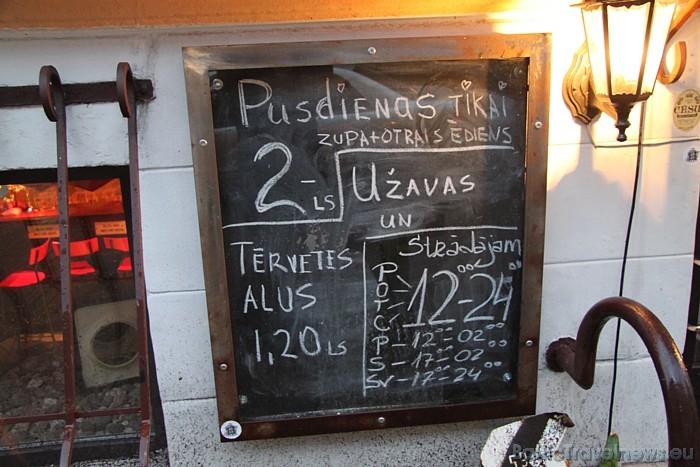 Pusdienas tikai
zupa+otrais ēdiens
2-LS
Užavas
un
Tērvetes
alus
1,20 LS
Strādājam
P
O
T
C
12⁰⁰-24⁰⁰
P-12⁰⁰-02⁰⁰
S-17⁰⁰-02⁰⁰
Sv-17⁰⁰-24⁰⁰
BalticTravelnews.eu